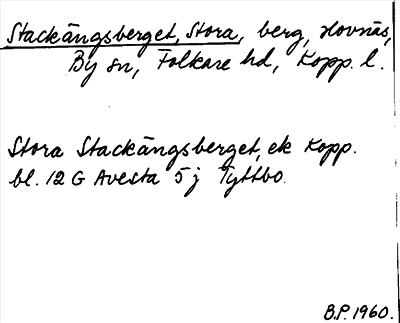 Stackängsberget, Stora, berg, Hovnäs,
By sn, Folkare hd, Kopp. l.
Stora Stackängsberget, ek Kopp.
bl. 12 G Avesta 5 j Tyttbo.
B.P. 1960.